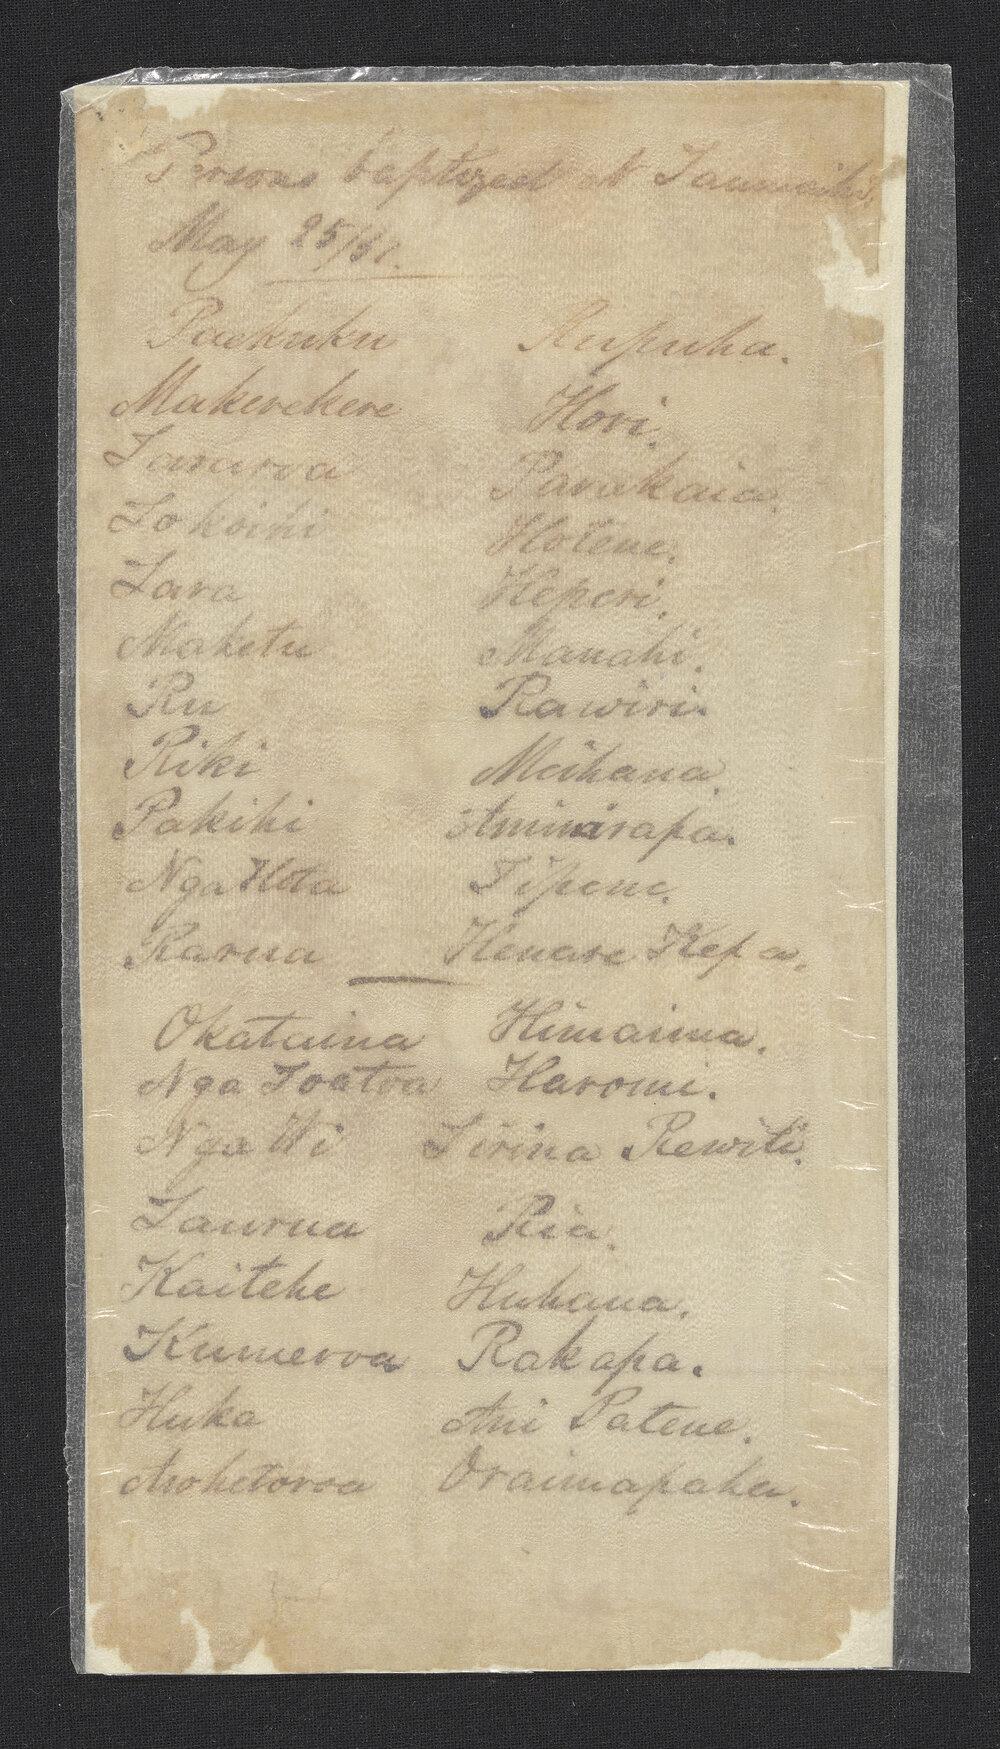 Persons baptized at
May 25/
Paekuku Rupuha.
Makerekere Hori.
Tararoa Parakaia.
Tokoihi Hotene.
Tara Heperi.
Maketu Manahi.
Ru Rawiri.
Riki Meihana
Pakihi Aminarapa.
Nga Hota Tipene.
Rarua Henare Kepa.
Okataina Himaima.
Nga Toatoa Haromi.
Nga Wi Tirina Rewiti.
Taurua Ria.
Kaitehe Huhana.
Kumeroa Rakapa.
Huka Ani Patene.
Aroketoroa Oraimapaha.